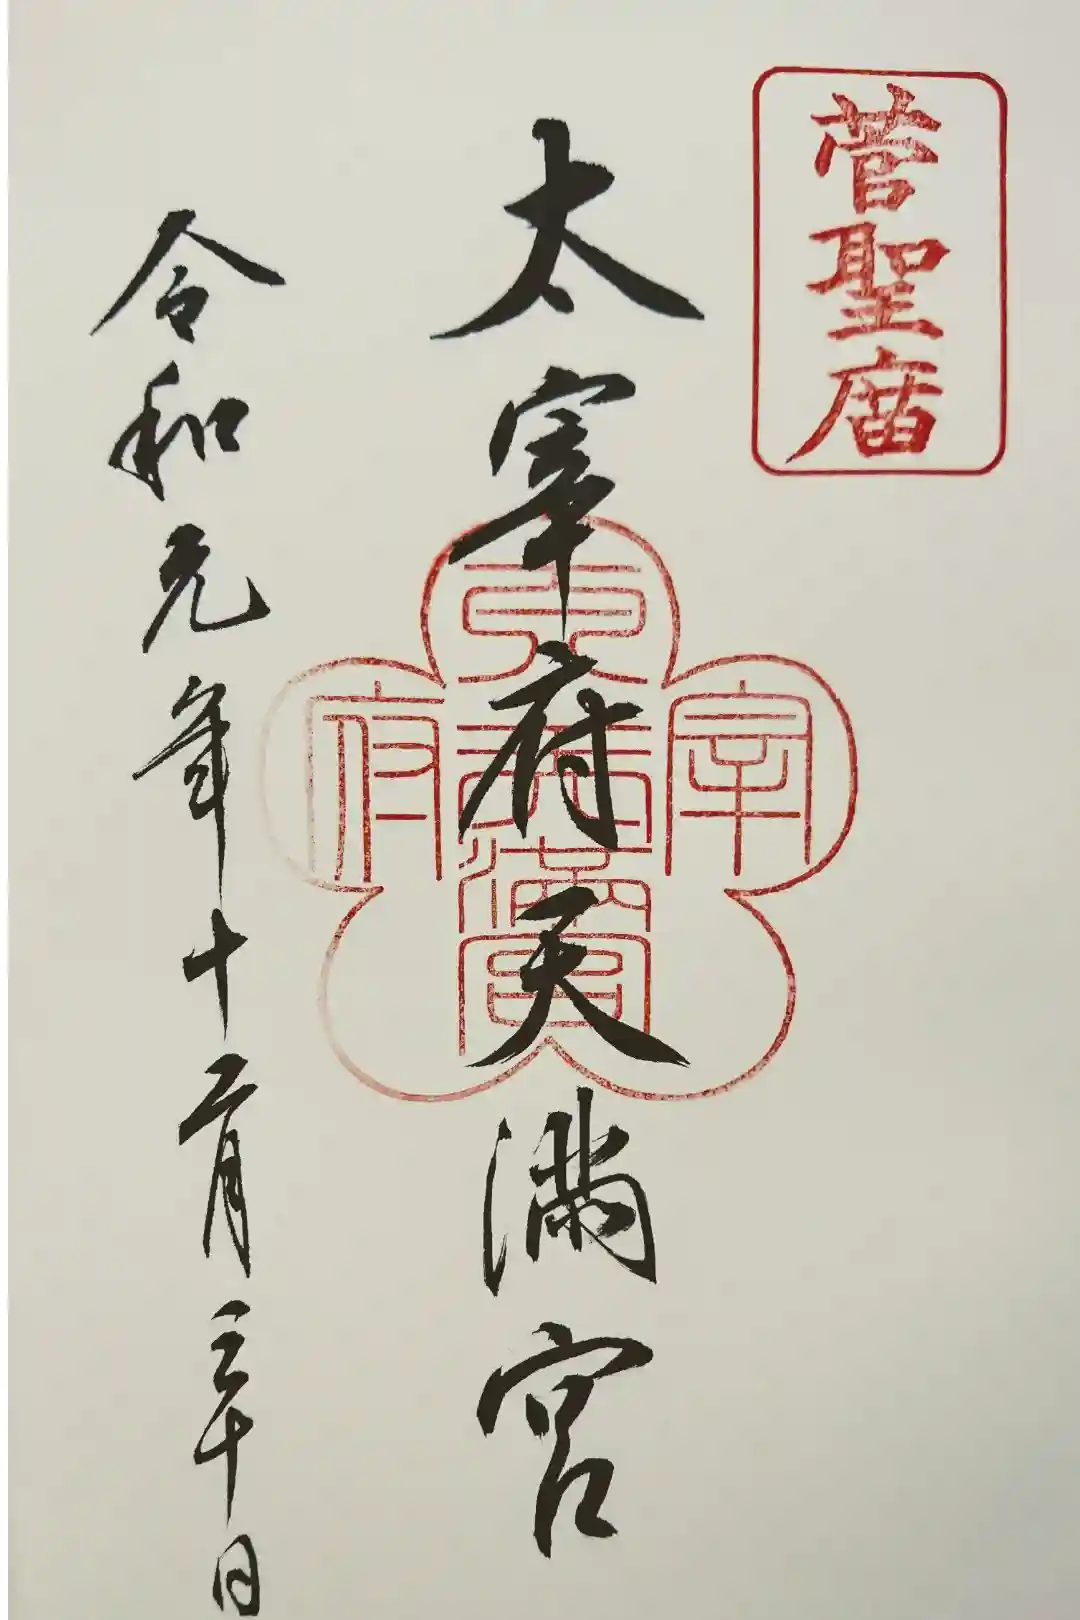 菅聖庿
太宰府天満宮
令和元年十二月三十日
宰
府
天満宮